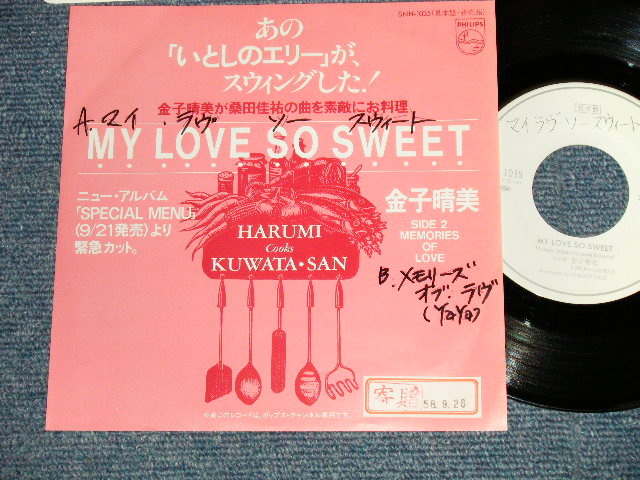 SNH-1035(見本盤・非売品)
PHILIPS
あの
「いとしのエリー」が、
スウィングした!
金子晴美が桑田佳祐の曲を素敵にお料理
A.マイ・ラヴ ソー スウィート
MY LOVE SO SWEET
ニュー・アルバム
「SPECIAL MENU」
(9/21発売)より
緊急カット。
HARUMI
Cooks
KUWATA・SAN
金子晴美
SIDE 2
MEMORIES
OF
LOVE
B.メモリーズ
オブ・ラヴ
(YaYa)
寄贈
58.9.26
見本盤
マイ ラヴ ソー スウィート
-1035
MY LOVE SO SWEET
金子晴美